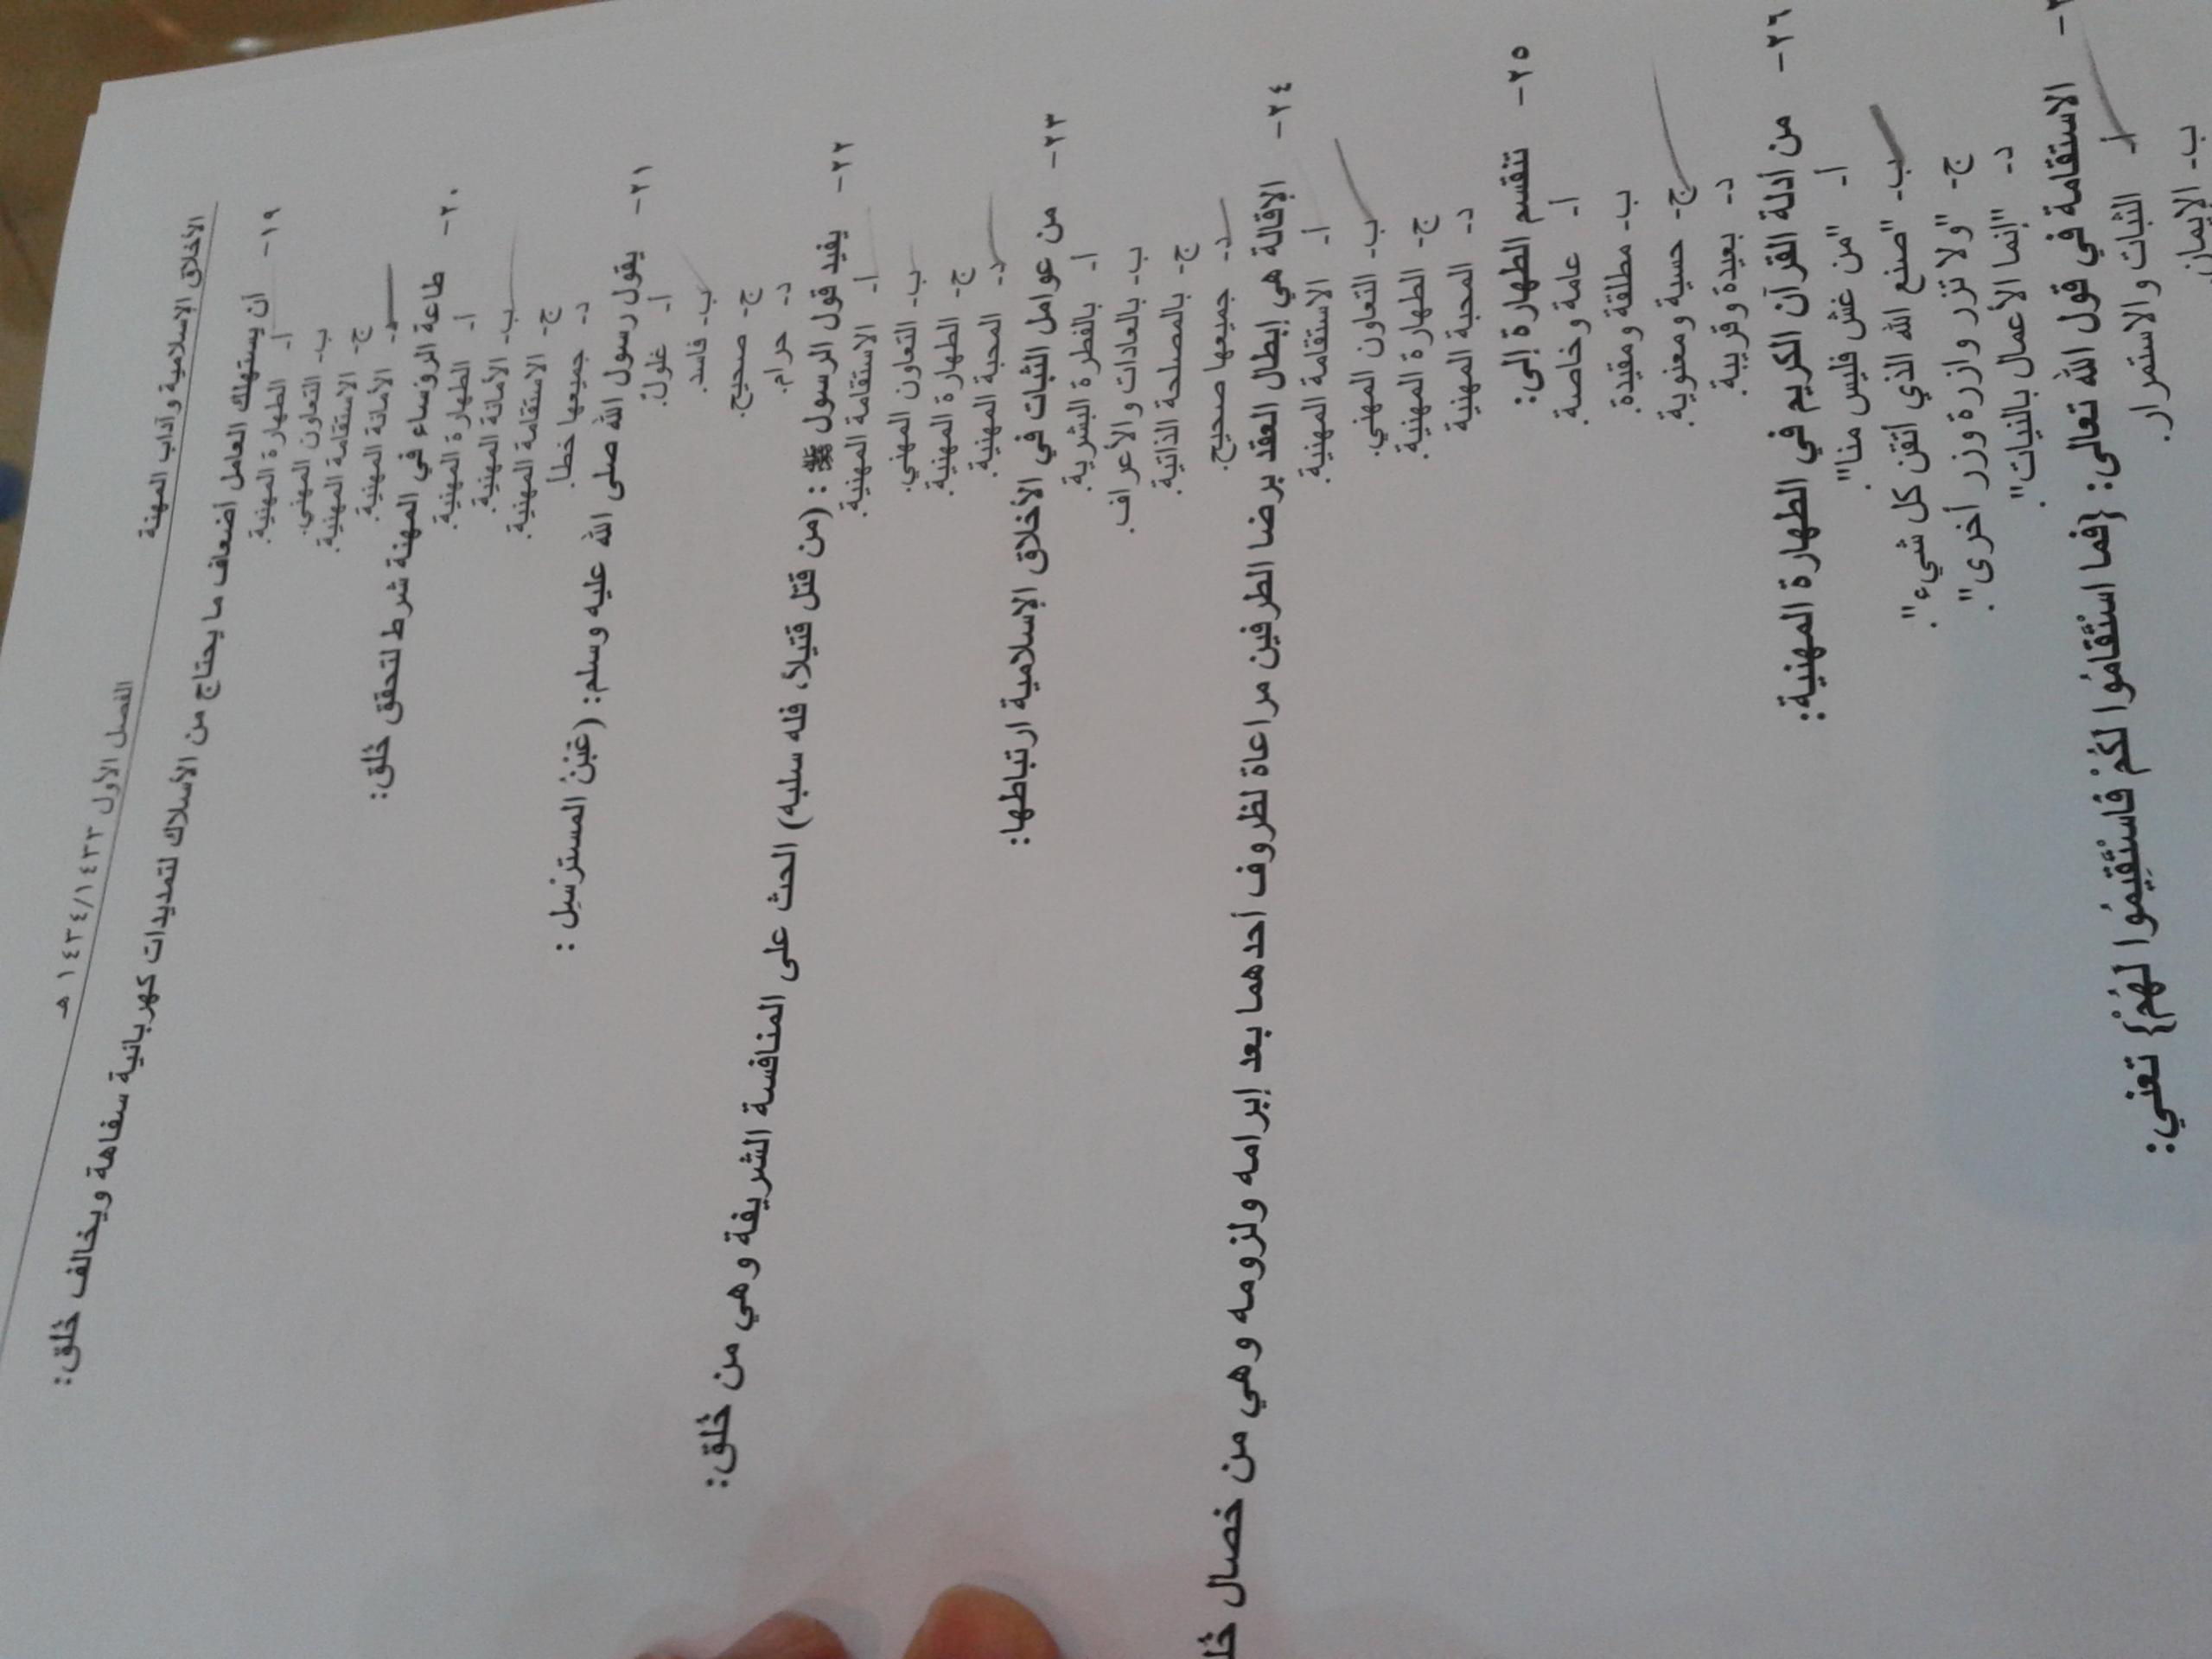 الأخلاق الإسلامية وآداب المهنة
الفصل الأول ١٤٣٤/١٤٣٣ هـ
١٩- أن يستهلك العامل أضعاف ما يحتاج من الأسلاك لتمديدات كهربائية سفاهة ويخالف خُلق:
أ- الطهارة المهنية.
ب- التعاون المهني.
ج- الاستقامة المهنية.
د- الأمانة المهنية.
٢٠- طاعة الرؤساء في المهنة شرط لتحقق خُلق:
أ- الطهارة المهنية.
ب- الأمانة المهنية.
ج- الاستقامة المهنية.
د- جميعها خطأ.
٢١- يقول رسول الله صلى الله عليه وسلم: (غَبْنُ المسترسِل :
أ- غلول.
ب- فاسد.
ج- صحيح.
د- حرام.
٢٢- يفيد قول الرسول ﷺ : (من قتل قتيلاً، فله سلبه) الحث على المنافسة الشريفة وهي من خُلق:
أ- الاستقامة المهنية.
ب- التعاون المهني.
ج- الطهارة المهنية.
د- المحبة المهنية.
٢٣- من عوامل الثبات في الأخلاق الإسلامية ارتباطها:
أ- بالفطرة البشرية.
ب- بالعادات والأعراف.
ج- بالمصلحة الذاتية.
د- جميعها صحيح.
٢٤- الإقالة هي إبطال العقد برضا الطرفين مراعاة لظروف أحدهما بعد إبرامه ولزومه وهي من خصال
أ- الاستقامة المهنية.
ب- التعاون المهني.
ج- الطهارة المهنية.
د- المحبة المهنية
٢٥- تنقسم الطهارة إلى:
أ- عامة وخاصة.
ب- مطلقة ومقيدة.
ج- حسية ومعنوية.
د- بعيدة وقريبة.
٢٦- من أدلة القرآن الكريم في الطهارة المهنية:
أ- "من غش فليس منا".
ب- "صنع الله الذي أتقن كل شيء".
ج- "ولا تزر وازرة وزر أخرى".
د- "إنما الأعمال بالنيات".
الاستقامة في قول الله تعالى: {فما اسْتَقَامُوا لَكُمْ فَاسْتَقِيمُوا لهُمْ} تعني:
أ- الثبات والاستمرار.
ب- الإيمان.